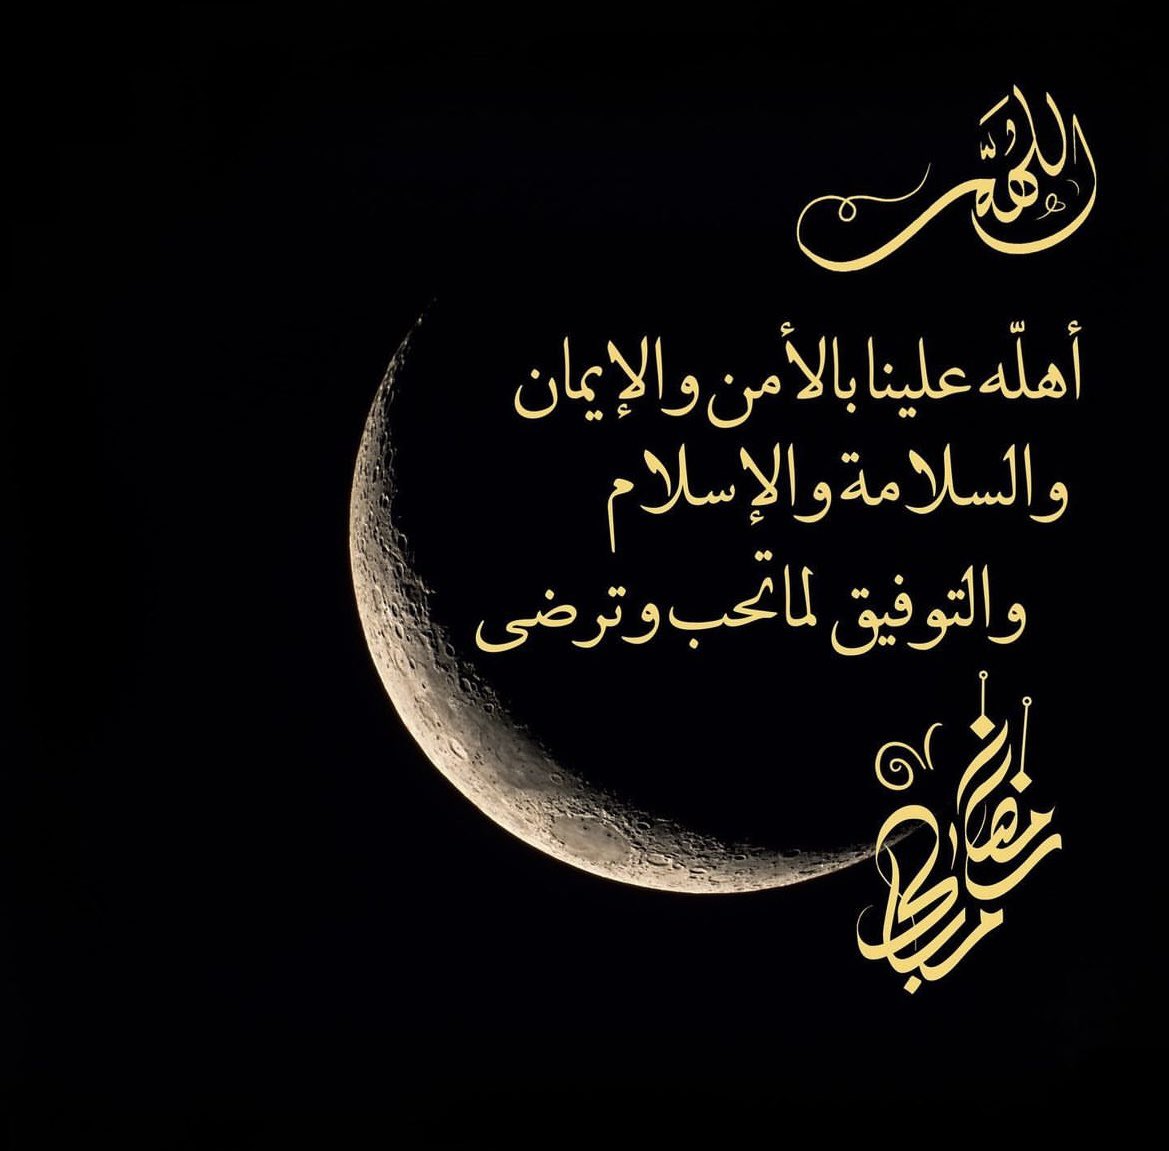 اللهمَّ
أهلّه علينا بالأمن والإيمان
والسلامة والإسلام
والتوفيق لما تحب وترضى
رمضان
مبارك